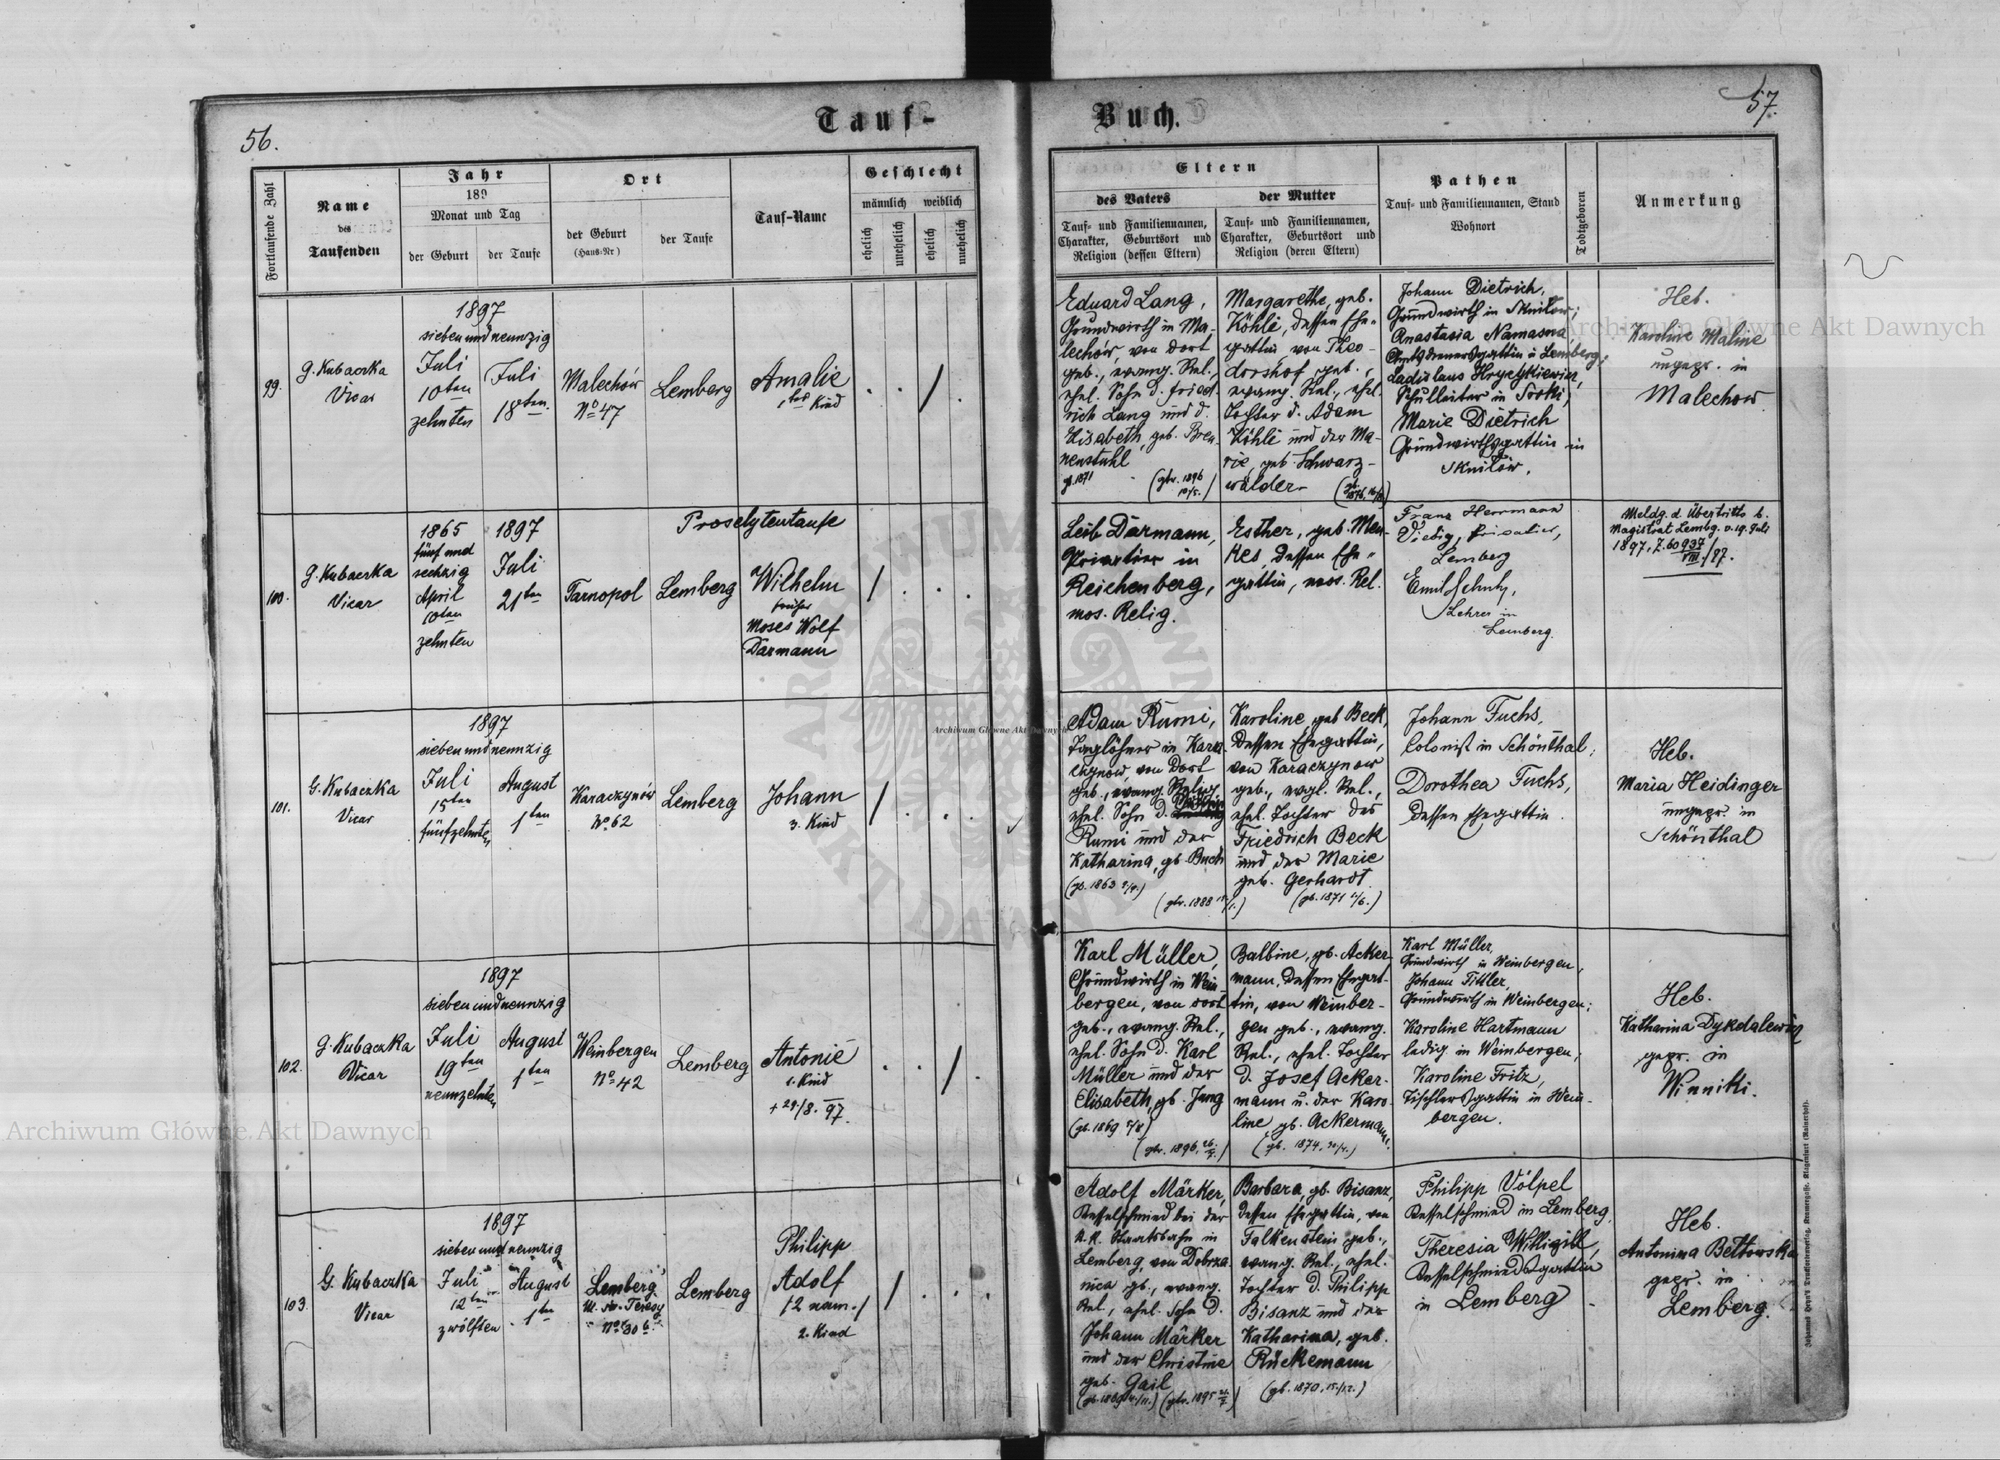 56.
Tauf-
Fortlaufende Zahl
Name
des
Taufenden
Jahr
189
Monat und Tag
der Geburt
der Taufe
Ort
der Geburt
(Haus-Nr)
der Taufe
Tauf-Name
Geschlecht
männlich
weiblich
ehelich
unehelich
ehelich
unehelich
99.
G. Kubaczka
Vicar
1897
siebenundneunzig
Juli
10ten
zehnten
Juli
18ten
Malechów
No 47
Lemberg
Amalie
1tes Kind
100.
G. Kubaczka
Vicar
1865
fünfund
sechzig
April
10ten
zehnten
1897
Juli
21ten
Tarnopol
Lemberg
Proselytentaufe
Wilhelm
früher
Moses Wolf
Darmann
101.
G. Kubaczka
Vicar
1897
siebenundneunzig
Juli
15ten
fünfzehnten
August
1ten
Karaczynów
No 62
Lemberg
Johann
3. Kind
102.
G. Kubaczka
Vicar
1897
siebenundneunzig
Juli
19ten
neunzehnten
August
1ten
Weinbergen
No 42
Lemberg
Antonie
1. Kind
+ 29/8. 97.
103.
G. Kubaczka
Vicar
1897
siebenundneunzig
Juli
12ten
zwölften
August
1ten
Lemberg
Ul. św. Teresy
No 30
Lemberg
Philipp
Adolf
/2 nam./
2. Kind
57.
Buch.
Eltern
des Vaters
Tauf- und Familiennamen,
Charakter, Geburtsort und
Religion (dessen Eltern)
der Mutter
Tauf- und Familiennamen,
Charakter, Geburtsort und
Religion (deren Eltern)
Pathen
Tauf- und Familiennamen, Stand
Wohnort
Todtgeboren
Anmerkung
Eduard Lang,
Grundwirth in Ma-
lechów, von dort
geb., evang. Rel.,
ehel. Sohn d. Fried-
rich Lang und d.
Elisabeth, geb. Bren-
nenstuhl
g. 1871
(gtr. 1896
10/5.)
Margarethe, geb.
Köhli, dessen Ehe-
gattin von Theo-
droshof geb.,
evang. Rel., ehel.
Tochter d. Adam
Köhli und der Ma-
rie, geb. Schwarz-
wälder
Johann Dietrich,
Grundwirth in Skniłow;
Anastasia Namasna
Amtsdienersgattin in Lemberg;
Ladislaus Hryczkiewicz,
Schulleiter in Sroki;
Marie Dietrich
Grundwirthsgattin in
Skniłow.
Heb.
Karoline Maline
ungepr. in
Malechow
Leib Darmann,
Privatier in
Reichenberg,
mos. Relig.
Esther, geb. Men-
kes, dessen Ehe-
gattin, mos. Rel.
Franz Herrmann
Viebig, Privatier,
Lemberg
Emil Schulz,
Lehrer in
Lemberg.
Meldg. d. Übertritts b.
Magistrat Lembg. v. 19. Juli
1897, Z. 60937
VIII./97.
Adam Rumi,
Taglöhner in Kara-
czynow, von dort
geb., evang. Relig.,
ehel. Sohn d.
Rumi und der
Katharina, gb. Buch
(gb. 1863 2/4.)
(gtr. 1888
Karoline, geb. Beck,
dessen Ehegattin,
von Karaczynow
geb., evgl. Rel.,
ehel. Tochter des
Friedrich Beck
und der Marie
geb. Gerhardt
Johann Fuchs,
Colonist in Schönthal;
Dorothea Fuchs,
dessen Ehegattin.
Heb.
Maria Heidinger
ungepr. in
Schönthal
Karl Müller,
Grundwirth in Wein-
bergen, von dort
geb., evang. Rel.,
ehel. Sohn d. Karl
Müller und der
Elisabeth, gb. Jung
Balbine, gb. Acker-
mann, dessen Ehegat-
tin, von Weinber-
gen geb., evang.
Rel., ehel. Tochter
d. Josef Acker-
mann u. der Karo-
line gb. Ackermann.
Karl Müller,
Grundwirth in Weinbergen,
Johann Tittler,
Grundwirth in Weinbergen;
Karoline Hartmann
ledig in Weinbergen;
Karoline Fritz,
Tischlersgattin in Wein-
bergen.
Heb.
Katharina Dykdalewicz
gepr. in
Winniki.
Adolf Märker,
Kesselschmied bei der
k.k. Staatsbahn in
Lemberg, von Dobrza-
nica gb., evang.
Rel., ehel. Sohn d.
Johann Märker
und der Christine
geb. Gail
Barbara, gb. Bisanz,
dessen Ehegattin, von
Falkenstein geb.,
evang. Rel., ehel.
Tochter d. Philipp
Bisanz und der
Katharina, geb.
Rückemann
(gb. 1870, 15./12.)
Philipp Völpel
Kesselschmied in Lemberg,
Theresia
Kesselschmiedsgattin
in Lemberg
Heb.
Antonina Bettowska
gepr. in
Lemberg.
Archiwum Główne Akt Dawnych
Archiwum Główne Akt Dawnych
Archiwum Główne Akt Dawnych